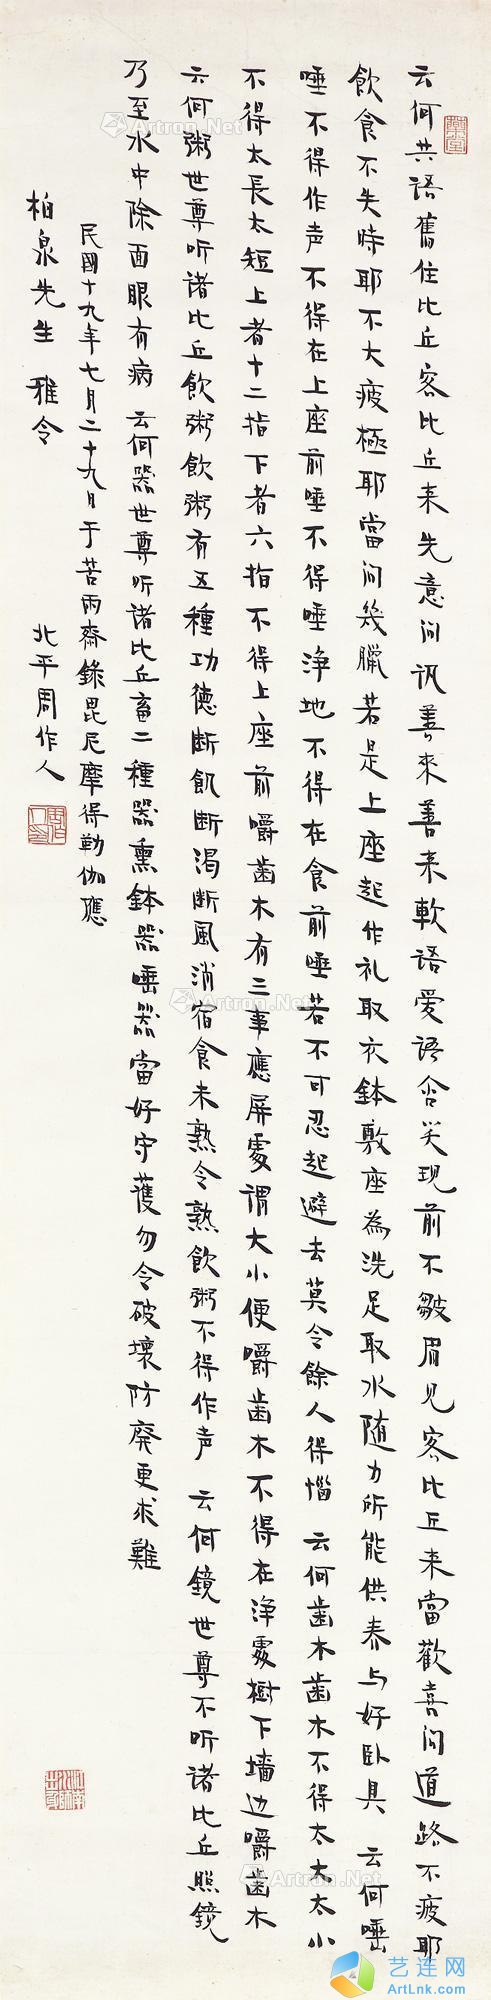 云何共語舊住比丘客比丘来先意问讯善來善来軟語愛語含笑現前不皺眉见客比丘来當歡喜问道路不疲耶
飲食不失時耶不大疲極耶當问幾臘若是上座起作礼取衣鉢敷座為洗足取水随力所能供养与好卧具 云何唾
唾不得作声不得在上座前唾不得唾净地不得在食前唾若不可忍起避去莫令餘人得惱 云何齒木齒木不得太大太小
不得太長太短上者十二指下者六指不得上座前嚼齒木有三事應屏處谓大小便嚼齒木不得在净處樹下墙边嚼齒木
云何粥世尊听諸比丘飲粥飲粥有五種功德断飢断渴断風消宿食未熟令熟飲粥不得作声 云何鏡世尊不听諸比丘照鏡
乃至水中除面眼有病 云何器世尊听諸比丘畜二種器熏鉢器唾器當好守護勿令破壞防廢更求難
民國十九年七月二十九日于苦雨齋錄毘尼摩得勒伽應
柏泉先生 雅令
北平周作人
Artron.Net
Artron.Net
Artron.Net
Artron.Net
Artron.Net
Artron.Net
艺连网
ArtLnk.Com